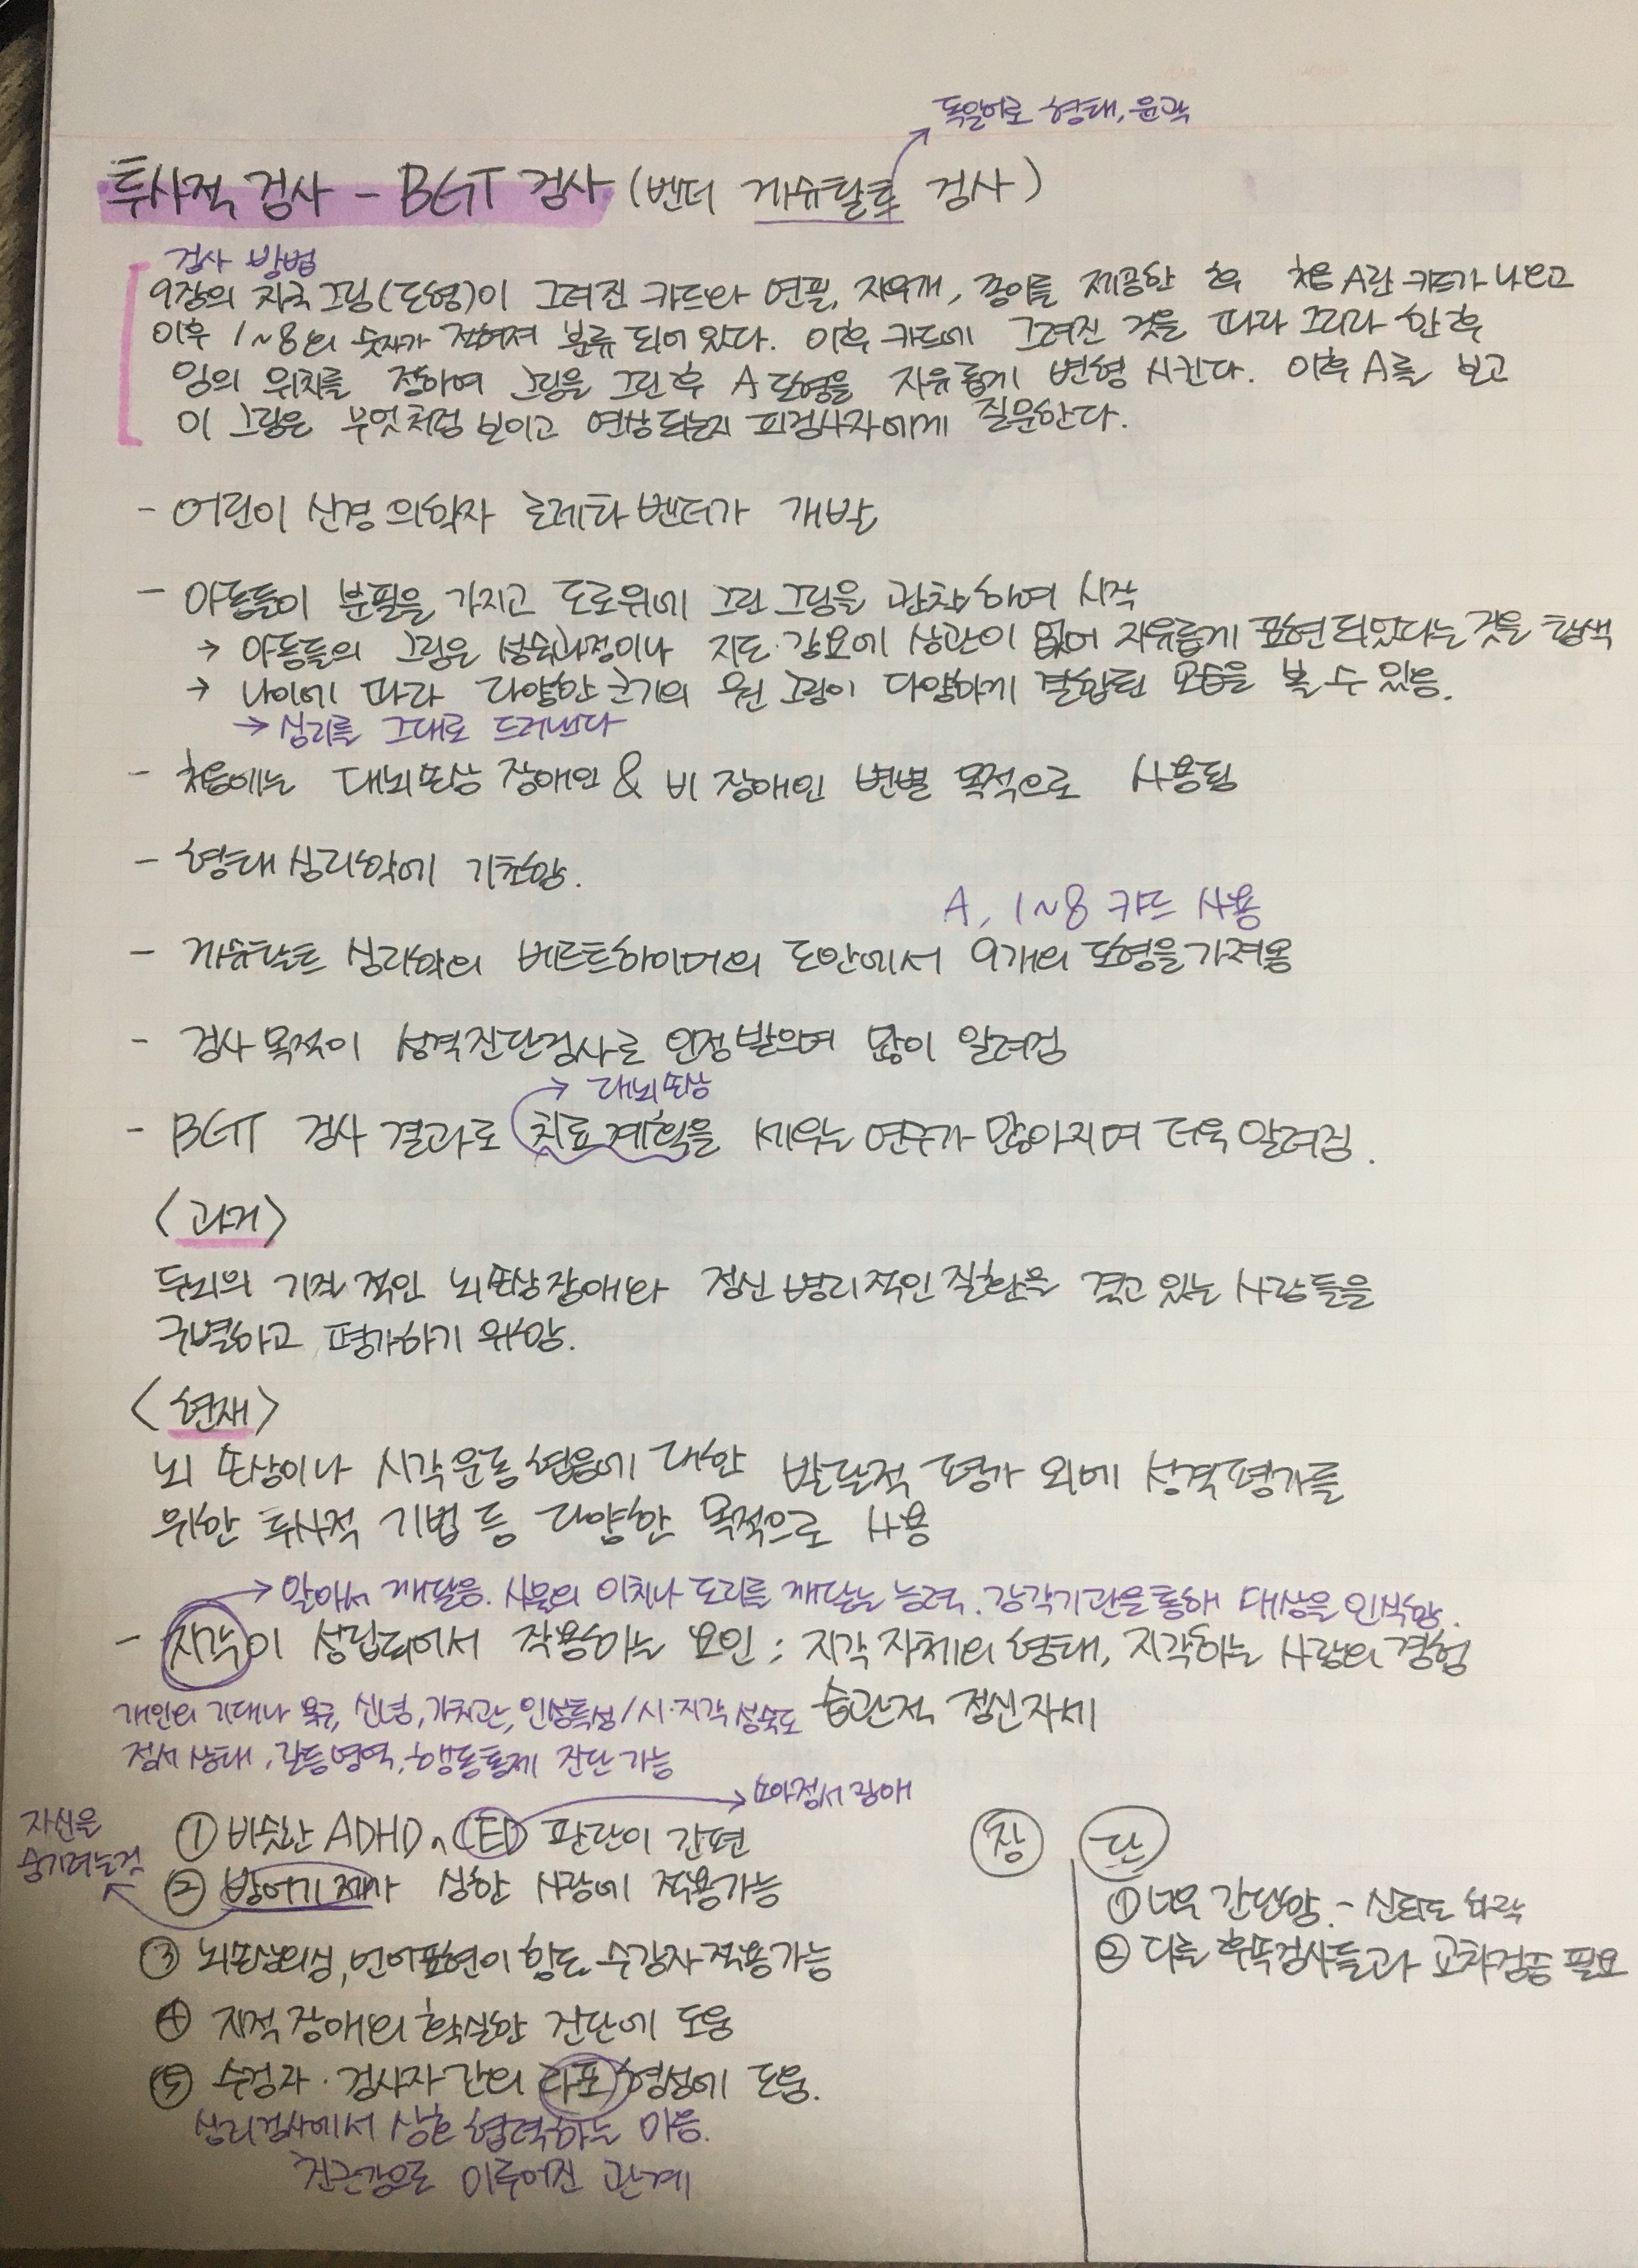 독일어로 형태, 윤곽
투사적 검사 - BGT 검사 (벤더 게슈탈트 검사)
검사 방법
9장의 자극그림(도형)이 그려진 카드와 연필, 지우개, 종이를 제공한 후 처음 A란 카드가 나오고
이후 1~8의 숫자가 적혀져 분류 되어 있다. 이후 카드에 그려진 것을 따라 그리라 한 후
임의 위치를 정하여 그림을 그린 후 A 도형을 자유롭게 변형 시킨다. 이후 A를 보고
이 그림은 무엇처럼 보이고 연상되는지 피검사자에게 질문한다.
- 어린이 신경 의학자 로레타 벤더가 개발
- 아동들이 분필을 가지고 도로위에 그린 그림을 관찰하여 시작
→ 아동들의 그림은 성숙과정이나 지도·강요에 상관이 없어 자유롭게 표현되었다는 것을 탐색
→ 나이에 따라 다양한 크기의 원 그림이 다양하게 결합된 모습을 볼 수 있음.
→ 심리를 그대로 드러낸다
- 처음에는 대뇌손상 장애인 & 비 장애인 변별 목적으로 사용됨
- 형태심리학에 기초함.
A, 1~8 카드 사용
- 게슈탈트 심리학의 베르트하이머의 도안에서 9개의 도형을 가져옴
- 검사 목적이 성격진단검사로 인정 받으며 많이 알려짐
→ 대뇌손상
- BGT 검사 결과로 치료계획을 세우는 연구가 많아지며 더욱 알려짐.
<과거>
두뇌의 기질적인 뇌손상장애와 정신 병리적인 질환을 겪고 있는 사람들을
구별하고 평가하기 위함.
<현재>
뇌 손상이나 시각운동 협응에 대한 발달적 평가 외에 성격평가를
위한 투사적 기법 등 다양한 목적으로 사용
→ 알아서 깨달음. 사물의 이치나 도리를 깨닫는 능력. 감각기관을 통해 대상을 인식함.
- 지각이 성립되어서 작용하는 요인 ; 지각 자체의 형태, 지각하는 사람의 경험
개인의 기대나 욕구, 신념, 가치관, 인성특성/시·지각 성숙도 습관적 정신자세
정서 상태, 갈등영역, 행동통제 진단 가능
→ 소아정서 장애
자신을
숨기려는것
① 비슷한 ADHD, ED 판단이 간편
② 방어기제가 심한 사람에 적용가능
③ 뇌손상의심, 언어표현이 힘든 수검자 적용가능
④ 지적장애의 확실한 진단에 도움
⑤ 수검자·검사자 간의 라포 형성에 도움.
심리검사에서 상호 협력하는 마음.
친근감으로 이루어진 관계
장 단
① 너무 간단함. - 신뢰도 하락
② 다른 후속검사들과 교차검증 필요